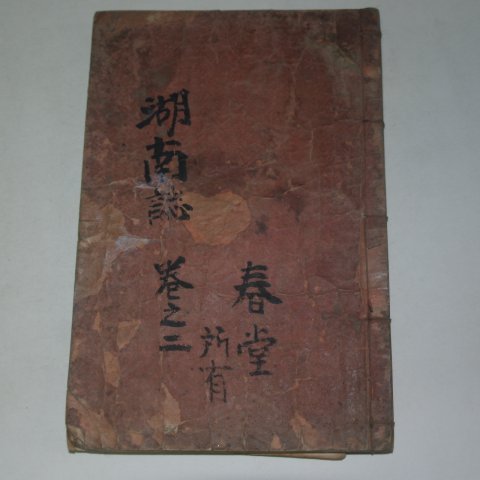 春堂
所有
湖南誌 卷之二